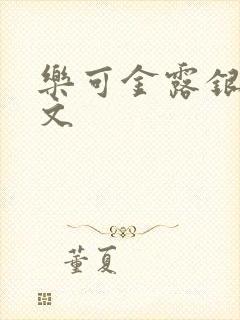 樂可金露銀
文
董夏